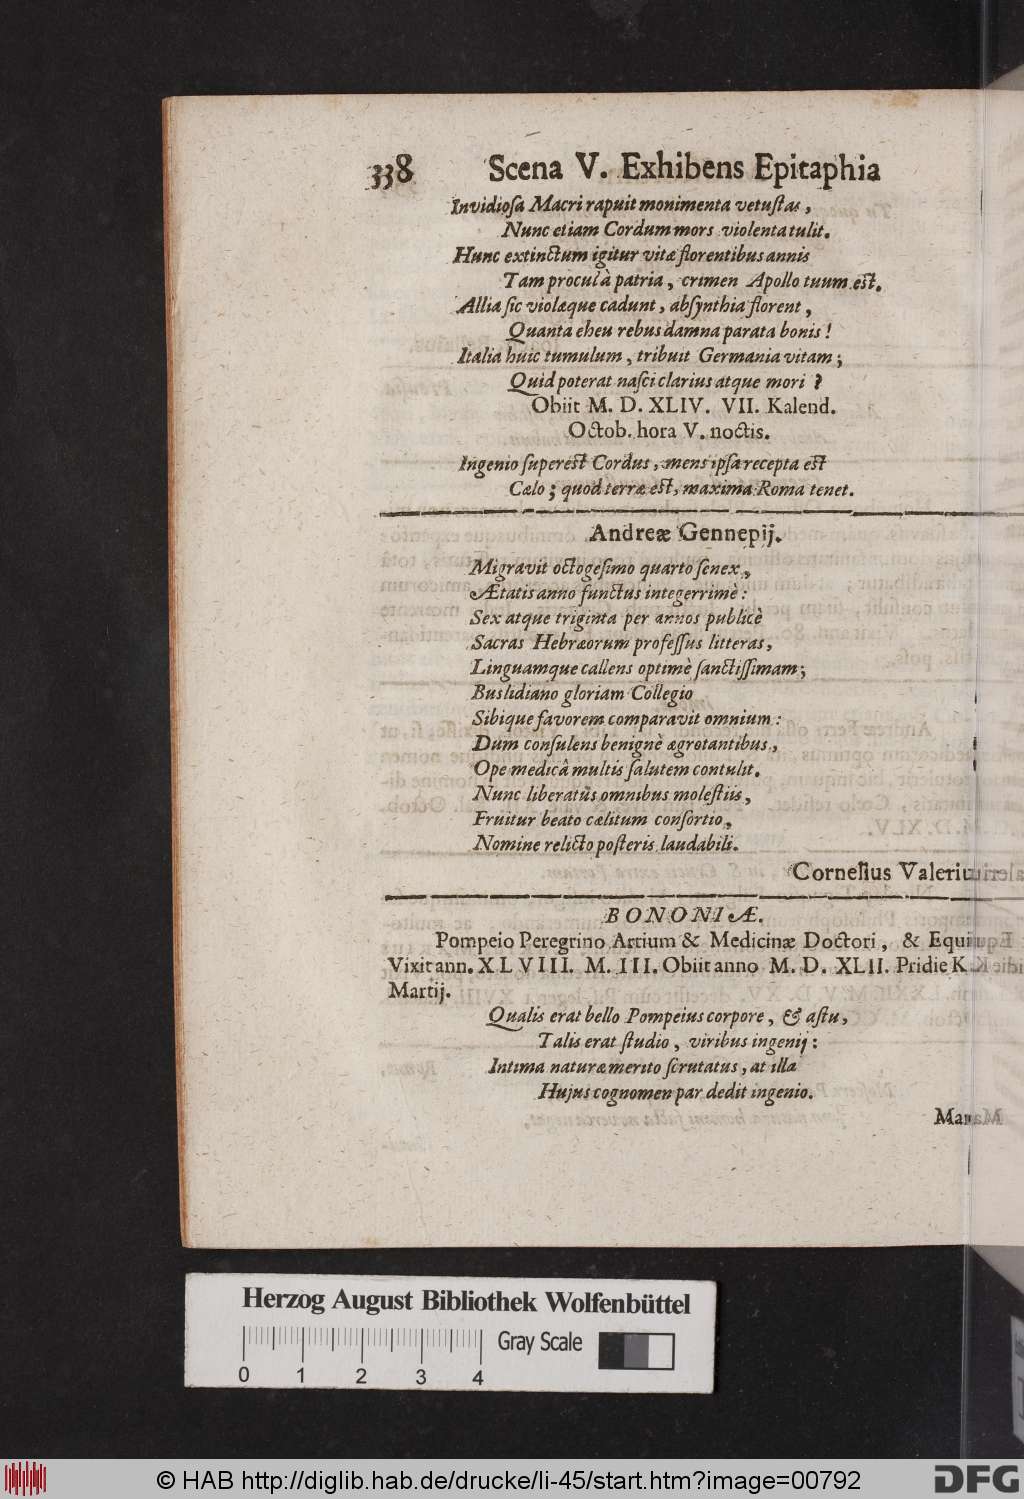 338 Scena V. Exhibens Epitaphia
Invidiosa Macri rapuit monimenta vetustas,
Nunc etiam Cordum mors violenta tulit.
Hunc extinctum igitur vitæ florentibus annis
Tam procul à patria, crimen Apollo tuum est.
Allia sic violæque cadunt, absynthia florent,
Quanta eheu rebus damna parata bonis!
Italia huic tumulum, tribuit Germania vitam;
Quid poterat nasci clarius atque mori?
Obiit M. D. XLIV. VII. Kalend.
Octob. hora V. noctis.
Ingenio superest Cordus, mens ipsa recepta est
Cælo; quod terræ est, maxima Roma tenet.
Andreæ Gennepij.
Migravit octogesimo quarto senex,
Ætatis anno functus integerrimè:
Sex atque triginta per annos publicè
Sacras Hebræorum professus litteras,
Linguamque callens optimè sanctissimam;
Buslidiano gloriam Collegio
Sibique favorem comparavit omnium:
Dum consulens benignè ægrotantibus,
Ope medicâ multis salutem contulit.
Nunc liberatus omnibus molestiis,
Fruitur beato cælitum consortio,
Nomine relicto posteris laudabili.
Cornelius Valerius
BONONIÆ.
Pompeio Peregrino Artium & Medicinæ Doctori, & Equi
Vixit ann. XLVIII. M. III. Obiit anno M. D. XLII. Pridie K.
Martij.
Qualis erat bello Pompeius corpore, & astu,
Talis erat studio, viribus ingenij:
Intima naturæ merito scrutatus, at illa
Hujus cognomen par dedit ingenio.
Herzog August Bibliothek Wolfenbüttel
Gray Scale
0 1 2 3 4
© HAB http://diglib.hab.de/drucke/li-45/start.htm?image=00792
DFG